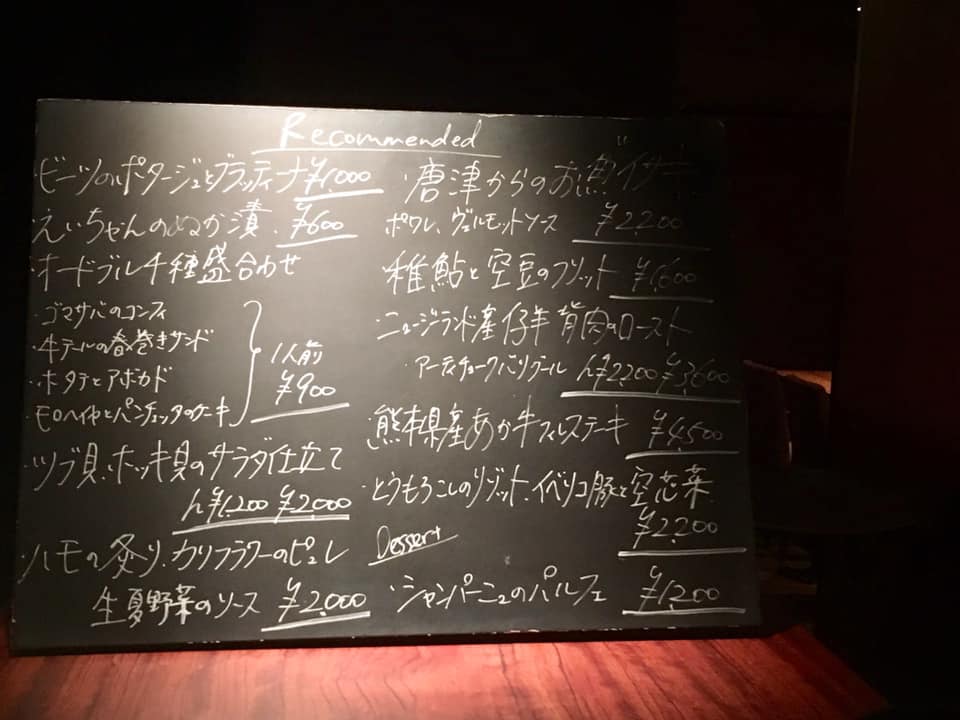 Recommended
・ビーツのポタージュとブラッティーナ ¥1,000
・えいちゃんのぬか漬 ¥600
・オードブル4種盛合わせ
・ゴマサバのコンフィ
・牛テールの春巻きサンド
・ホタテとアボカド
・モロヘイヤとパンチェッタのケーキ
1人前
¥900
・ツブ貝、ホッキ貝のサラダ仕立て
h¥1,200 ¥2,000
・ハモの炙り、カリフラワーのピュレ
生夏野菜のソース ¥2,000
・唐津からのお魚 イサキ
ポワレ、ヴェルモットソース ¥2200
・稚鮎と空豆のフリット ¥1,600
・ニュージランド産仔羊背肉のロースト
アーティチョークバリグール h¥2,200 ¥3,600
・熊本県産あか牛フィレステーキ ¥4,500
・とうもろこしのリゾット、イベリコ豚と空芯菜
¥2,200
Dessert
・シャンパーニュのパルフェ ¥1,200